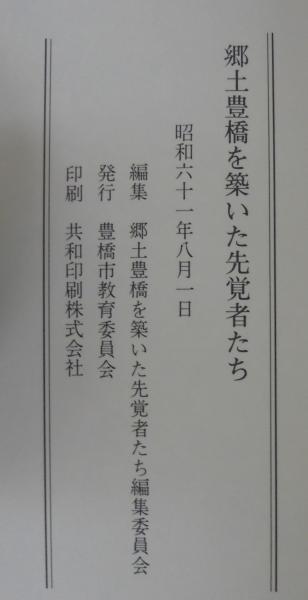 郷土豊橋を築いた先覚者たち
昭和六十一年八月一日
編集　郷土豊橋を築いた先覚者たち編集委員会
発行　豊橋市教育委員会
印刷　共和印刷株式会社